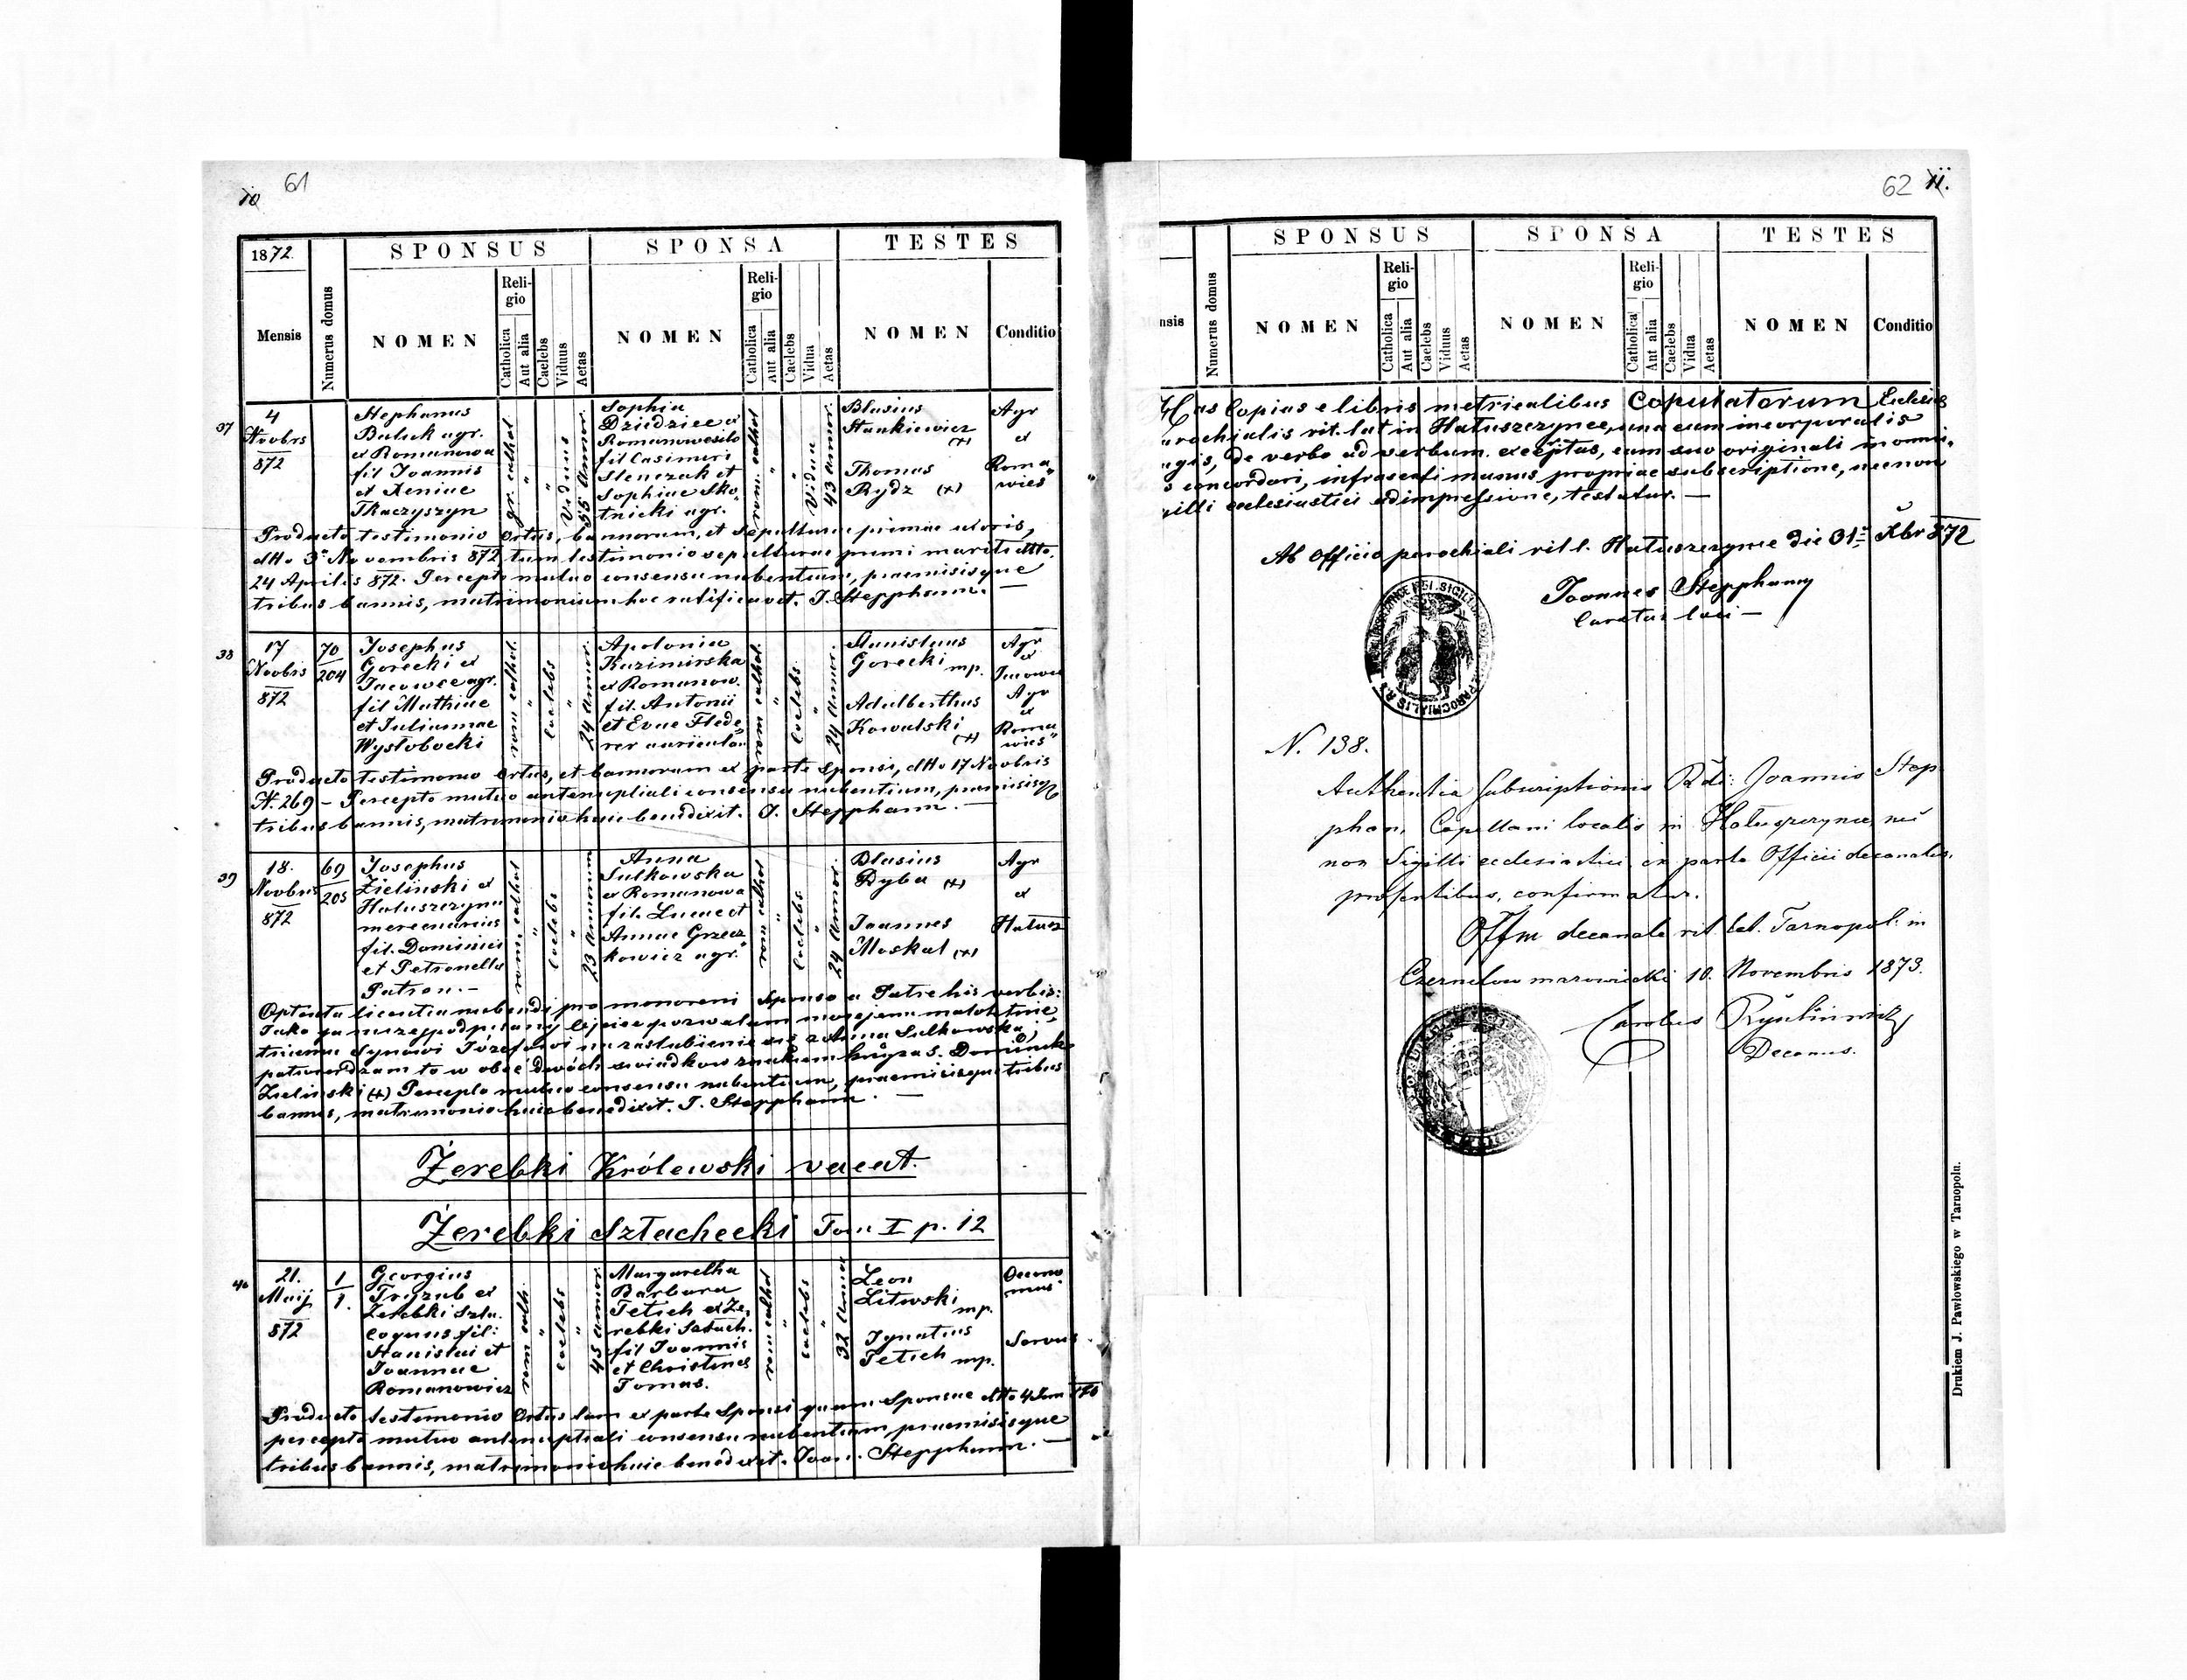 10 61
1872.
SPONSUS SPONSA TESTES
Mensis
Numerus domus
NOMEN
Religio
Catholica
Aut alia
Caelebs
Viduus
Aetas
NOMEN
Religio
Catholica
Aut alia
Caelebs
Vidua
Aetas
NOMEN
Conditio
37
4
Novbris
872
Stephanus
Baluk agr.
ex Romanowa
fil Joannis
et Xeniae
Tkaczyszyn
gr. cathol.
"
"
Viduus
55 Annor.
Sophia
Dziedzic ex
Romanowesiolo
fil Casimiri
Slenczak et
Sophiae Sko-
tnicki agr.
rom. cathol
"
"
Vidua
43 annor.
Blasius
Stankiewicz
(+)
Thomas
Rydz (+)
Agr
ex
Roma
wies"
Producto testimonio Ortus, bannorum, et sepulturae primae uxoris,
dtto 3. Novembris 872 tum testimonio sepulturae primi mariti dtto.
24 Aprilis 872. Percepto mutuo consensu nubentium, praemisisque
tribus bannis, matrimonium hoc ratificavit. J. Stepphann. —
38
17
Novbris
872
70
204
Josephus
Gorecki ex
Jacowce agr.
fil Mathiae
et Juliannae
Wysłobocki
rom cathol.
"
caelebs
"
24 annor.
Apolonia
Kazimirska
ex Romanow.
fil. Antonii
et Evae Flede-
rer
rom cathol.
"
Caelebs
"
24 Annor.
Stanislaus
Gorecki mp.
Adalberthus
Kowalski
(+)
Agr
ex
Agr
ex
Roma
wies"
Producto testimonio Ortus, et bannorum ex parte Sponsi, dtto 17 Novbris
N. 269 – Percepto mutuo antenuptiali consensu nubentium, praemisisq
tribus bannis, matrimonio huic benedixit. J. Stepphann. —
39
18.
Novbris
872
69
205
Josephus
Zieliński ex
Hałuszczynce
mercenarius
fil. Dominici
et Petronella
Patron. –
rom. cathol
"
Caelebs
"
23 annorum
Anna
Sulkowska
ex Romanowa
fil. Lucae et
Annae Grzesz-
kowicz agr.
rom cathol
"
Caelebs
"
24 Annor.
Blasius
Dyba (+)
Joannes
Moskal (+)
Agr
ex
Hałusz
Optenta licentia nubendi pro minoreni Sponso a Patre his verbis:
Jako ja niżej podpisany Ojciec pozwalam mojemu małolet-
niemu Synowi Józefowi na zaslubienie się z Anna Sulkowska,
potwierdzam to w obec dwóch swiadkow znakiem krzyza S. Dominik
Zielinski (+) Percepto mutuo consensu nubentium, praemisisque tribus
bannis, matrimonio huic benedixit. J. Stepphann. —
Żerebki Królewski vacat.
Żerebki Szlachecki Tom I p. 12
40
21.
Maij
872
1
1.
Georgius
Tryzub ex
Żerebki Szla.
coquus fil:
Stanislai et
Joannae
Romanowicz
rom cath.
"
caelebs
"
45 annor.
Margaretha
Barbara
Fetich ex Że-
rebki Szlach.
fil Joannis
et Christinas
Tomas.
rom cathol
"
caelebs
"
32 Annor
Leon
Litwski
mp.
Ignatius
Fetich mp.
Oecono
mus
Servus
Producto testimonio Ortus tam ex parte Sponsi quam Sponsae dtto 4 Jan
percepto mutuo antenuptiali consensu nubentium, praemisisque
tribus bannis, matrimonio huic benedixit. Joan. Stepphann. —
62 11.
SPONSUS SPONSA TESTES
nsis
Numerus domus
NOMEN
Religio
Catholica
Aut alia
Caelebs
Viduus
Aetas
NOMEN
Religio
Catholica
Aut alia
Caelebs
Vidua
Aetas
NOMEN
Conditio
Has Copias e libris metricalibus Copulatorum Ecclesiae
arochialis rit. lat in Hałuszczynce, una cum incorporatis
agis, de verbo ad verbum exceptas, cum suo originali in omni-
s concordari, infrascripti manus propriae subscriptione, necnon
igilli ecclesiastici adimpressione, testatur. —
Ab Officio parochiali rit l. Hałuszczynce die 31 Xbr 872
Joannes Stepphann
Curatus loci —
N. 138.
Authentia Subscriptionis Rdi: Joannis Step-
phan, Capellani localis in Hałuszczynce, nec
non Sigilli ecclesiastici ex parte Officii decanalis,
praesentibus, confirmatur.
Offm decanale rit. lat. Tarnopol: in
Czernelow mazowiecki 10. Novembris 1873.
Carolus
Decanus.
Drukiem J. Pawłowskiego w Tarnopolu.